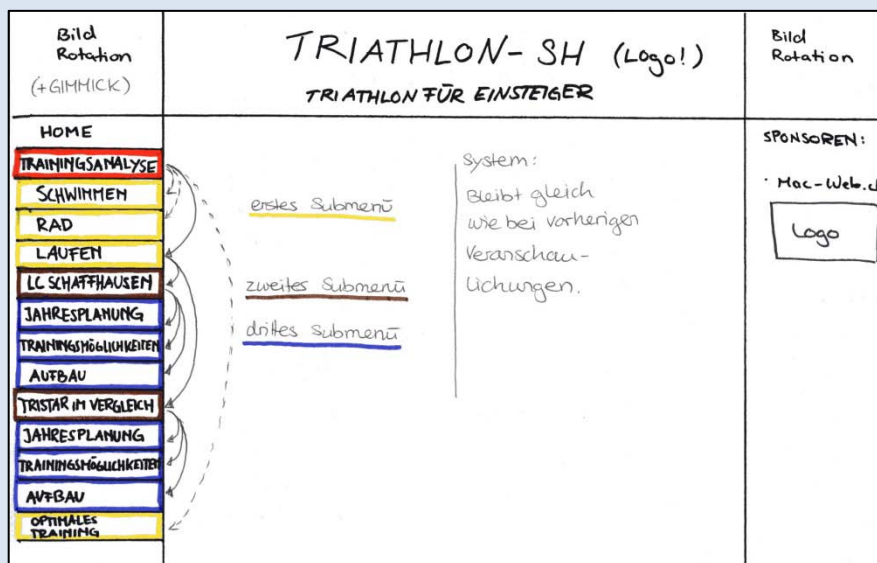 Bild
Rotation
(+GIMMICK)
TRIATHLON-SH (Logo!)
TRIATHLON FÜR EINSTEIGER
Bild
Rotation
HOME
TRAININGSANALYSE
SCHWIMMEN
RAD
LAUFEN
LC SCHAFFHAUSEN
JAHRESPLANUNG
TRAININGSMÖGLICHKEITEN
AUFBAU
TRISTAR IM VERGLEICH
JAHRESPLANUNG
TRAININGSMÖGLICHKEITEN
AUFBAU
OPTIMALES
TRAINING
erstes Submenü
zweites Submenü
drittes Submenü
System:
Bleibt gleich
wie bei vorherigen
Veranschau-
lichungen.
SPONSOREN:
· Mac-Web.c
Logo